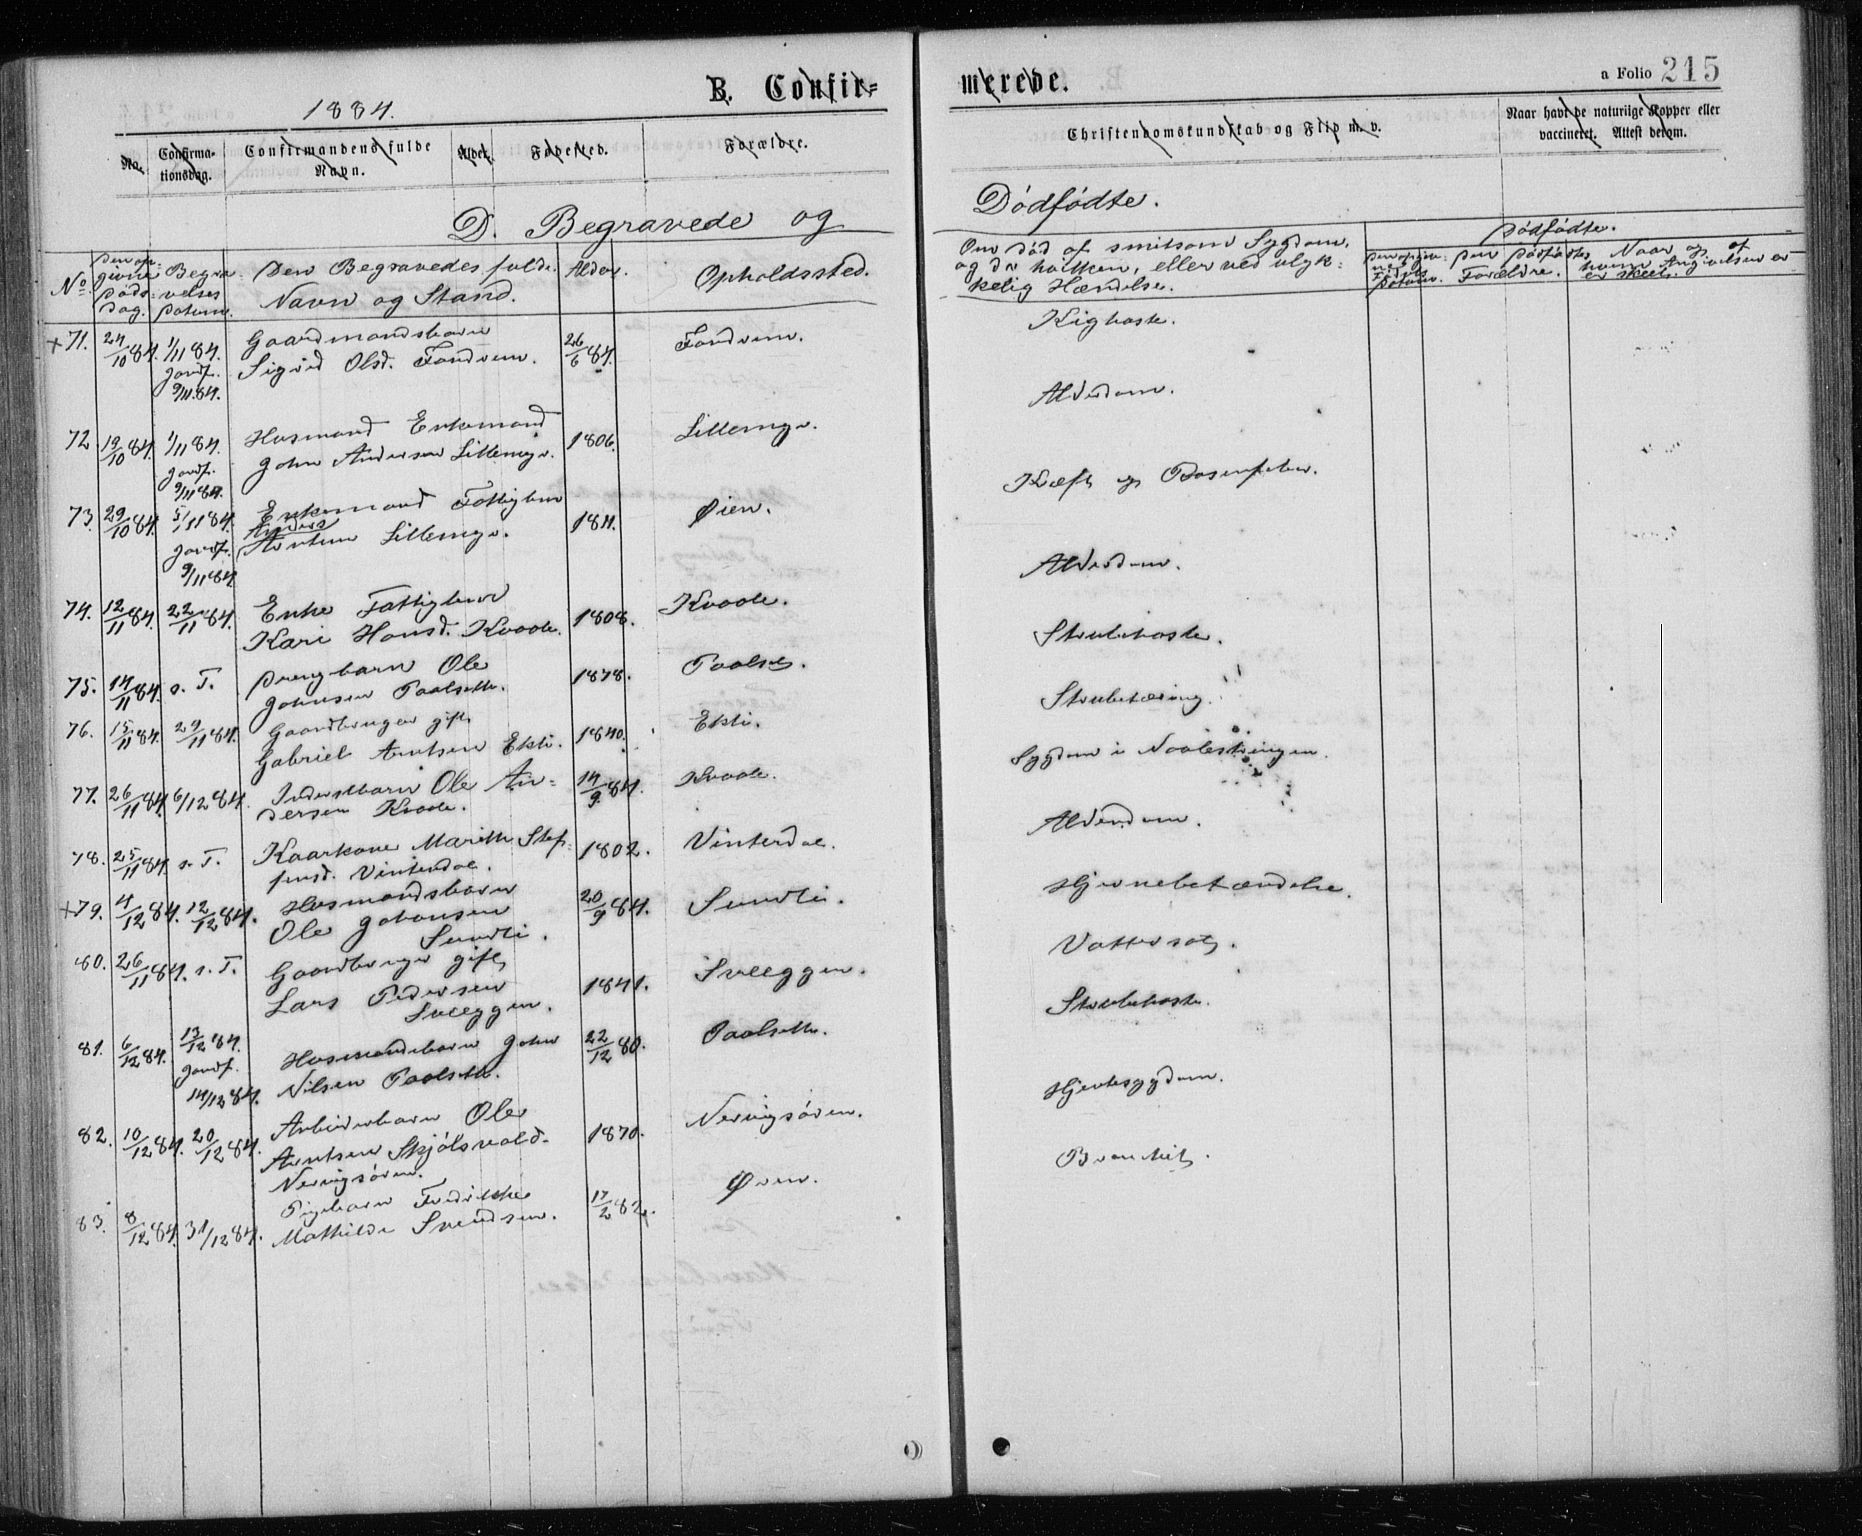 1884.
B. Confir=
merede.
a Folio 215
No.
Confirma-
tionsdag.
Confirmandens fulde
Navn.
Alder.
Fødested.
Forældre.
Christendomskundskab og Flid m. v.
Naar havt de naturlige Kopper eller
vaccineret. Attest derom.
D. Begravede og
Dødfødte.
No.
Den op-
givne
Døds-
dag.
Begra-
velses
Datum.
Den Begravedes fulde
Navn og Stand.
Alder.
Opholdssted.
Om død af smitsom Sygdom,
og da hvilken, eller ved ulyk-
kelig Hændelse.
Dødfødte.
Fødsels
Datum.
Den Dødfødtes
Forældre.
Naar og af
hvem Angivelsen er
er skeet.
+71. 24/10 84. 1/11 84. Gaardmandsbarn 26/6 84. Fondrem. Kighoste.
Jordf. Sigrid Olsd. Fondrem.
9/11 84.
72 19/10 84. 1/11 84. Husmand Enkemand 1806. Lillemyr. Alderdom.
Jordf. John Andersen Lillemyr.
9/11 84.
73. 29/10 84. 5/11 84. Enkemand Fattiglem 1811. Øien. Kræft og Rosenfeber.
Jordf. Anders
Arntsen Lillemyr.
9/11 84
74. 12/11 84. 22/11 84. Enke Fattiglem 1808. Kvaale. Alderdom.
Kari Hansd. Kvaale.
75. 14/11 84. s. T. Drengbarn Ole 1878. Paalset. Strubehoste.
Johnsen Paalseth.
76. 15/11 84. 29/11 84. Gaardbruger gift 1840. Ekli. Strubetæring.
Gabriel Arntsen Ekli.
77. 26/11 84. 6/12 84. Inderstbarn Ole An- 14/9 84. Kvaale. Sygdom i Naalestrengen.
dersen Kvaale.
78. 25/11 84. s. T. Kaarkone Marith Stef- 1802. Vinterdal. Alderdom.
fensd. Vinterdal.
+79. 4/12 84. 12/12 84. Husmandsbarn 20/9 84. Sundli. Hjernebetændelse.
Ole Johansen
Sundli.
80. 26/11 84. s. T. Gaardbruger gift 1841. Sveeggen. Vattersot.
Lars Pedersen
Sveeggen.
81. 6/12 84. 13/12 84. Husmandsbarn John 22/12 80. Paalseth. Strubehoste.
Jordf. Nilsen Paalseth.
14/12 84.
82. 10/12 84. 20/12 84. Arbeiderbarn Ole 1870. Nervigsøren. Hjertesygdom.
Arntsen Skjølsvold-
Nervigsøren.
83. 8/12 84. 31/12 84. Pigebarn Fredrikke 17/2 82. Øren. Bronchit.
Mathilde Svendsen.